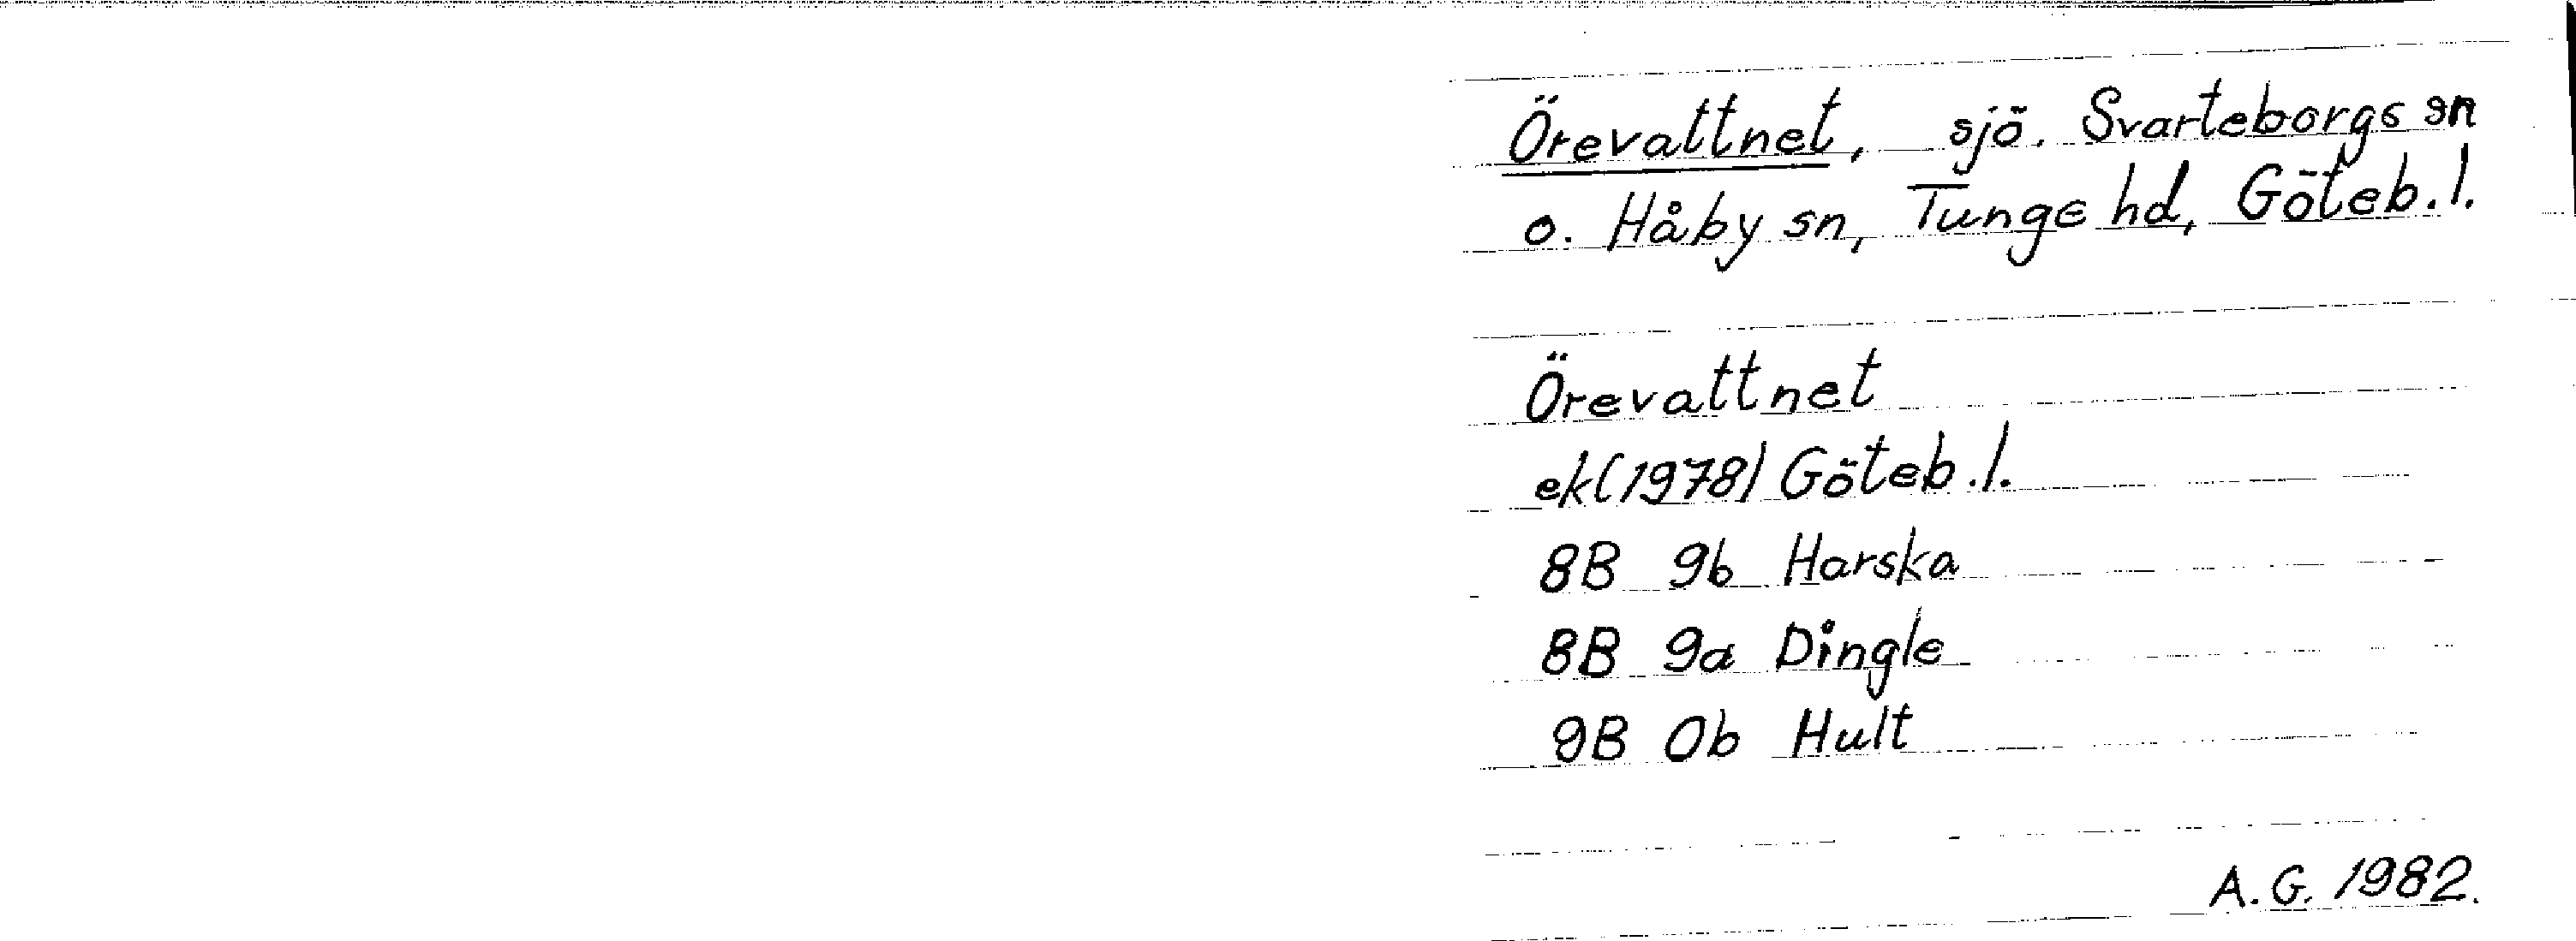 Örevattnet, sjö. Svarteborgs sn
o. Håby sn, Tunge hd, Göteb.l.
Örevattnet
ek(1978) Göteb.l.
8B 9b Harska
8B 9a Dingle
9B 0b Hult
A.G. 1982.